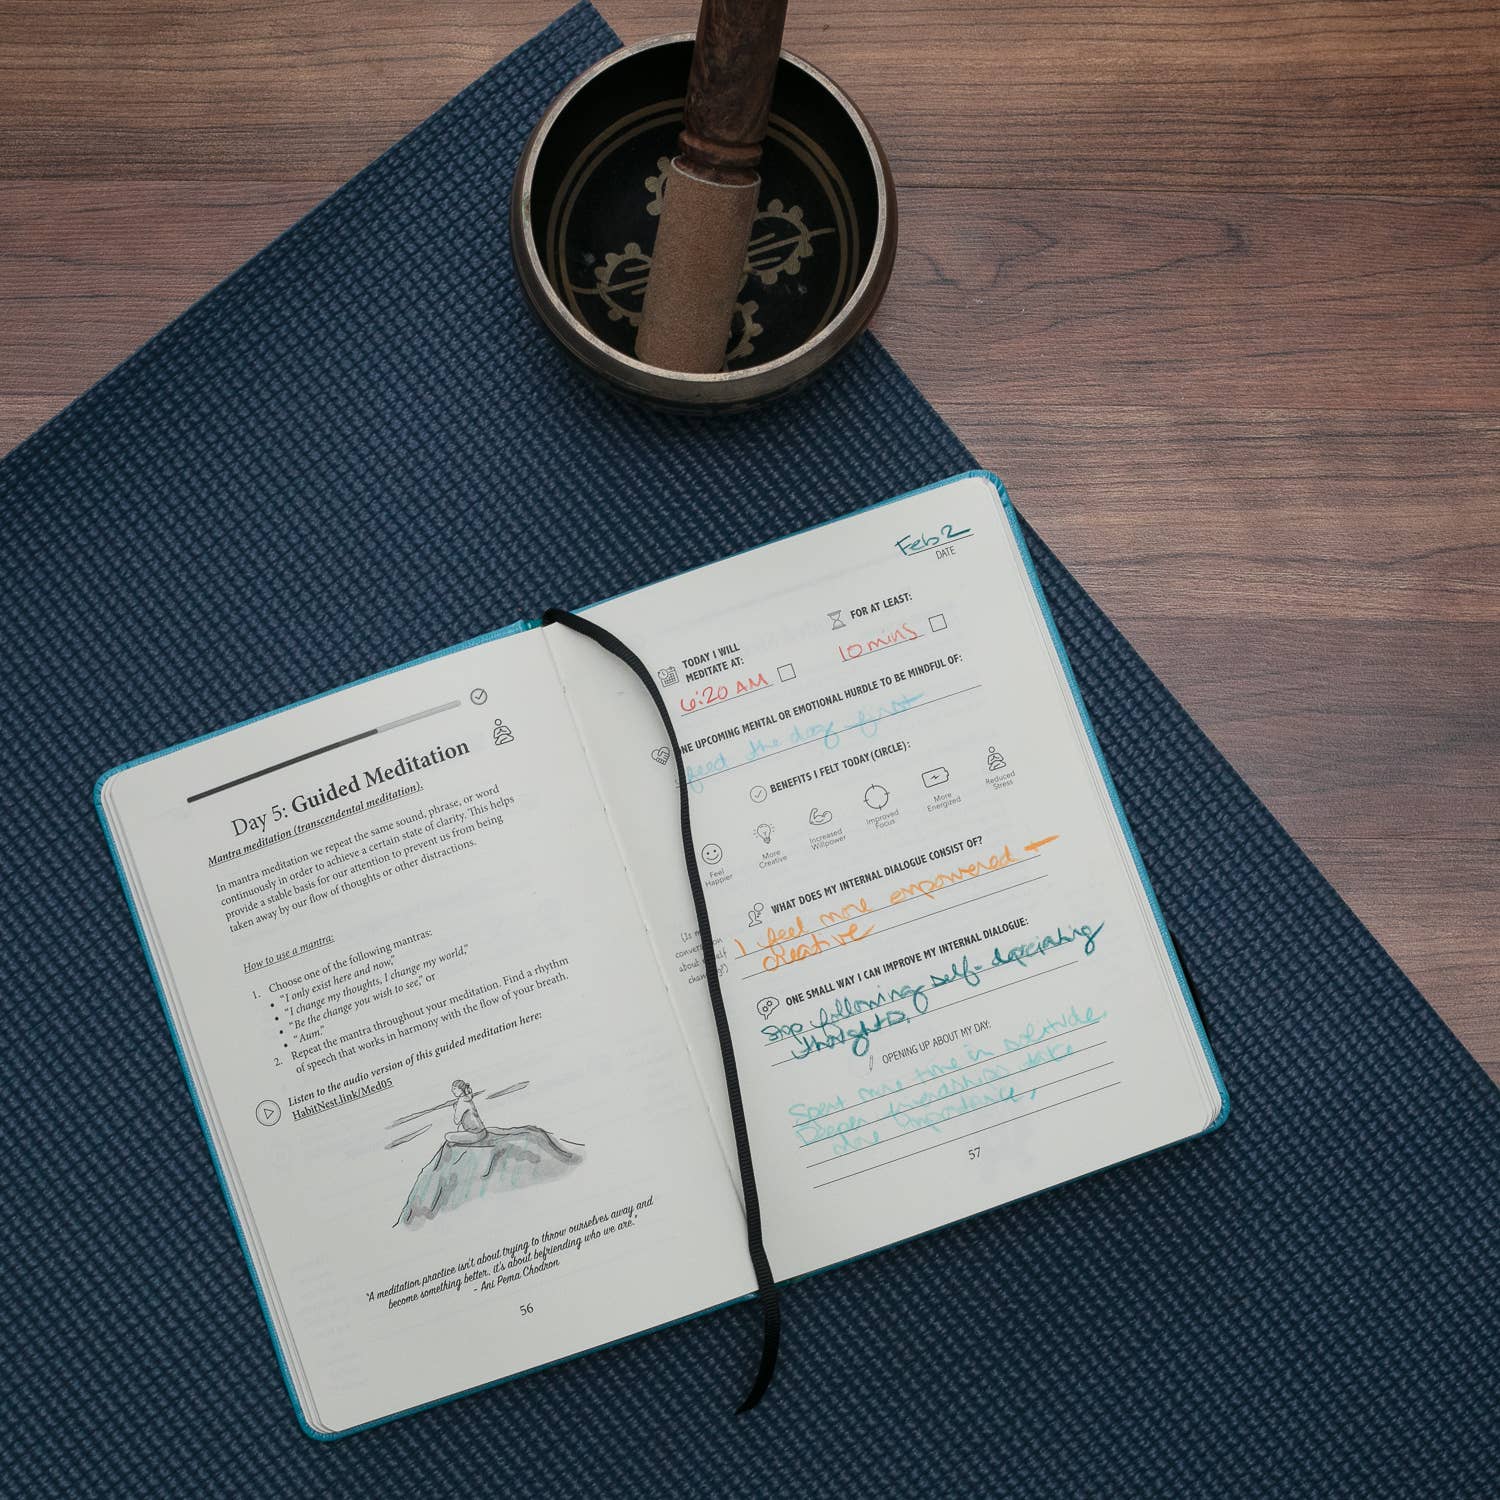 Day 5: Guided Meditation
Mantra meditation (transcendental meditation).
In mantra meditation we repeat the same sound, phrase, or word
continuously in order to achieve a certain state of clarity. This helps
provide a stable basis for our attention to prevent us from being
taken away by our flow of thoughts or other distractions.
How to use a mantra:
1. Choose one of the following mantras:
• "I only exist here and now,"
• "I change my thoughts, I change my world,"
• "Be the change you wish to see," or
• "Aum."
2. Repeat the mantra throughout your meditation. Find a rhythm
of speech that works in harmony with the flow of your breath.
Listen to the audio version of this guided meditation here:
HabitNest.link/Med05
"A meditation practice isn't about trying to throw ourselves away and
become something better, it's about befriending who we are."
- Ani Pema Chodron
56
Feb 2
DATE
TODAY I WILL
MEDITATE AT:
6:20 AM
FOR AT LEAST:
10 mins
NE UPCOMING MENTAL OR EMOTIONAL HURDLE TO BE MINDFUL OF:
feed the dog first
BENEFITS I FELT TODAY (CIRCLE):
Feel
Happier
More
Creative
Increased
Willpower
Improved
Focus
More
Energized
Reduced
Stress
WHAT DOES MY INTERNAL DIALOGUE CONSIST OF?
I feel more empowered +
creative
ONE SMALL WAY I CAN IMPROVE MY INTERNAL DIALOGUE:
Stop following self-depreciating
thoughts.
OPENING UP ABOUT MY DAY:
Spent more time in solitude
Deeper friendships take
more importance,
57